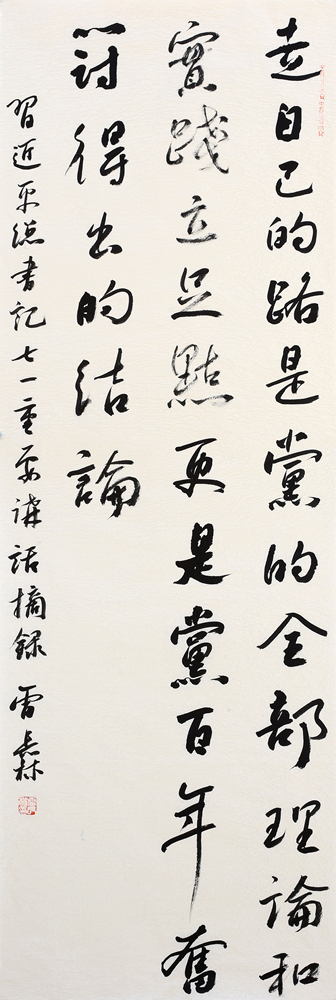 走自己的路是黨的全部理論和
實踐立足點更是黨百年奮
鬪得出的結論
習近平總書記七一重要講話摘録